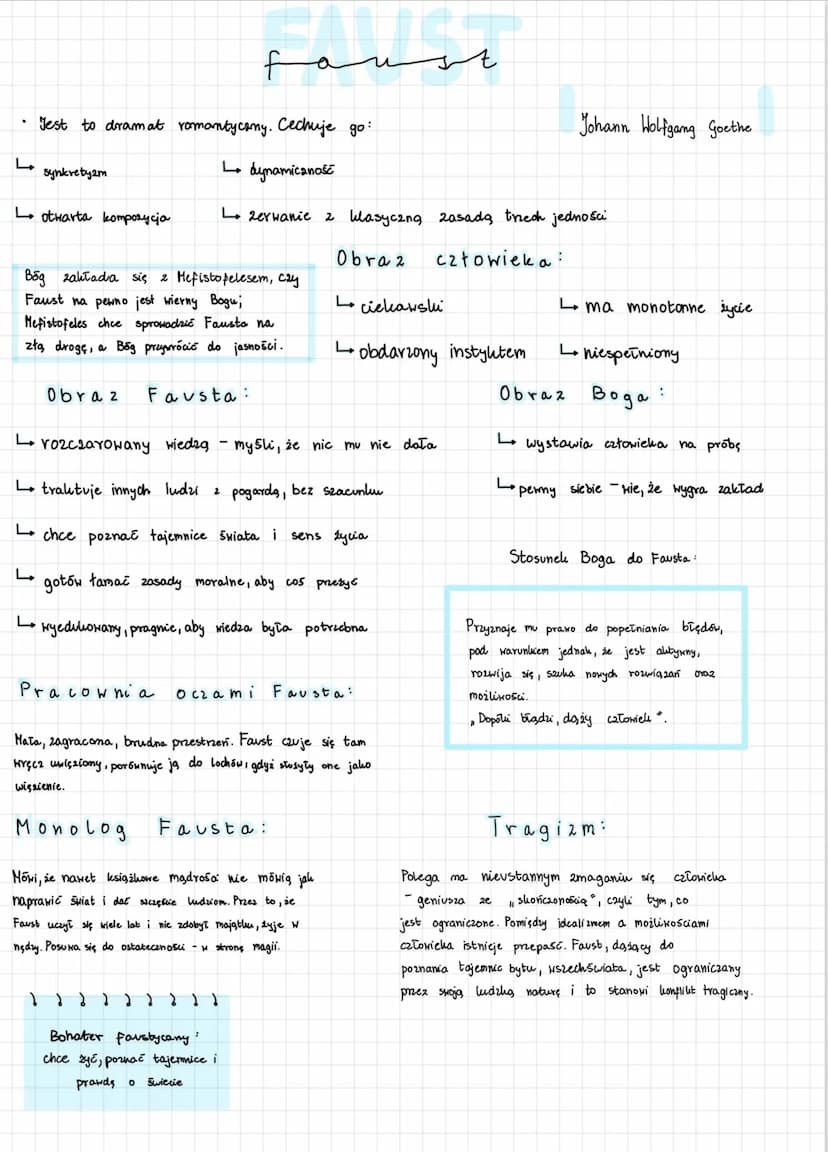 FAUST
faust
• Jest to dramat romantyczny. Cechuje go:
Johann Wolfgang Goethe
↳ synkretyzm
↳ dynamiczność
↳ otwarta kompozycja
↳ zerwanie z klasyczną zasadą trzech jedności
Bóg zakłada się z Mefistofelesem, czy
Faust na pewno jest wierny Bogu;
Mefistofeles chce sprowadzić Fausta na
złą drogę, a Bóg przywrócić do jasności.
Obraz człowieka:
↳ ciekawski
↳ ma monotonne życie
↳ obdarzony instyktem
↳ niespełniony
Obraz Fausta:
↳ rozczarowany wiedzą – myśli, że nic mu nie dała
↳ traktuje innych ludzi z pogardą, bez szacunku
↳ chce poznać tajemnice świata i sens życia
↳ gotów łamać zasady moralne, aby coś przeżyć
↳ wyedukowany, pragnie, aby wiedza była potrzebna
Obraz Boga:
↳ wystawia człowieka na próbę
↳ pewny siebie – wie, że wygra zakład
Stosunek Boga do Fausta:
Przyznaje mu prawo do popełniania błędów,
pod warunkiem jednak, że jest aktywny,
rozwija się, szuka nowych rozwiązań oraz
możliwości.
„Dopóki błądzi, dąży człowiek”.
Pracownia oczami Fausta:
Mała, zagracona, brudna przestrzeń. Faust czuje się tam
wręcz uwięziony, porównuje ją do lochów, gdyż służyły one jako
więzienie.
Monolog Fausta:
Mówi, że nawet książkowe mądrości nie mówią jak
naprawić świat i dać szczęście ludziom. Przez to, że
Faust uczył się wiele lat i nic zdobył majątku, żyje w
nędzy. Posuwa się do ostateczności – w stronę magii.
Tragizm:
Polega na nieustannym zmaganiu się człowieka
– geniusza ze „skończonością”, czyli tym, co
jest ograniczone. Pomiędzy idealizmem a możliwościami
człowieka istnieje przepaść. Faust, dążący do
poznania tajemnic bytu, wszechświata, jest ograniczany
przez swoją ludzką naturę i to stanowi konflikt tragiczny.
Bohater faustyczny:
chce żyć, poznać tajemnice i
prawdę o świecie